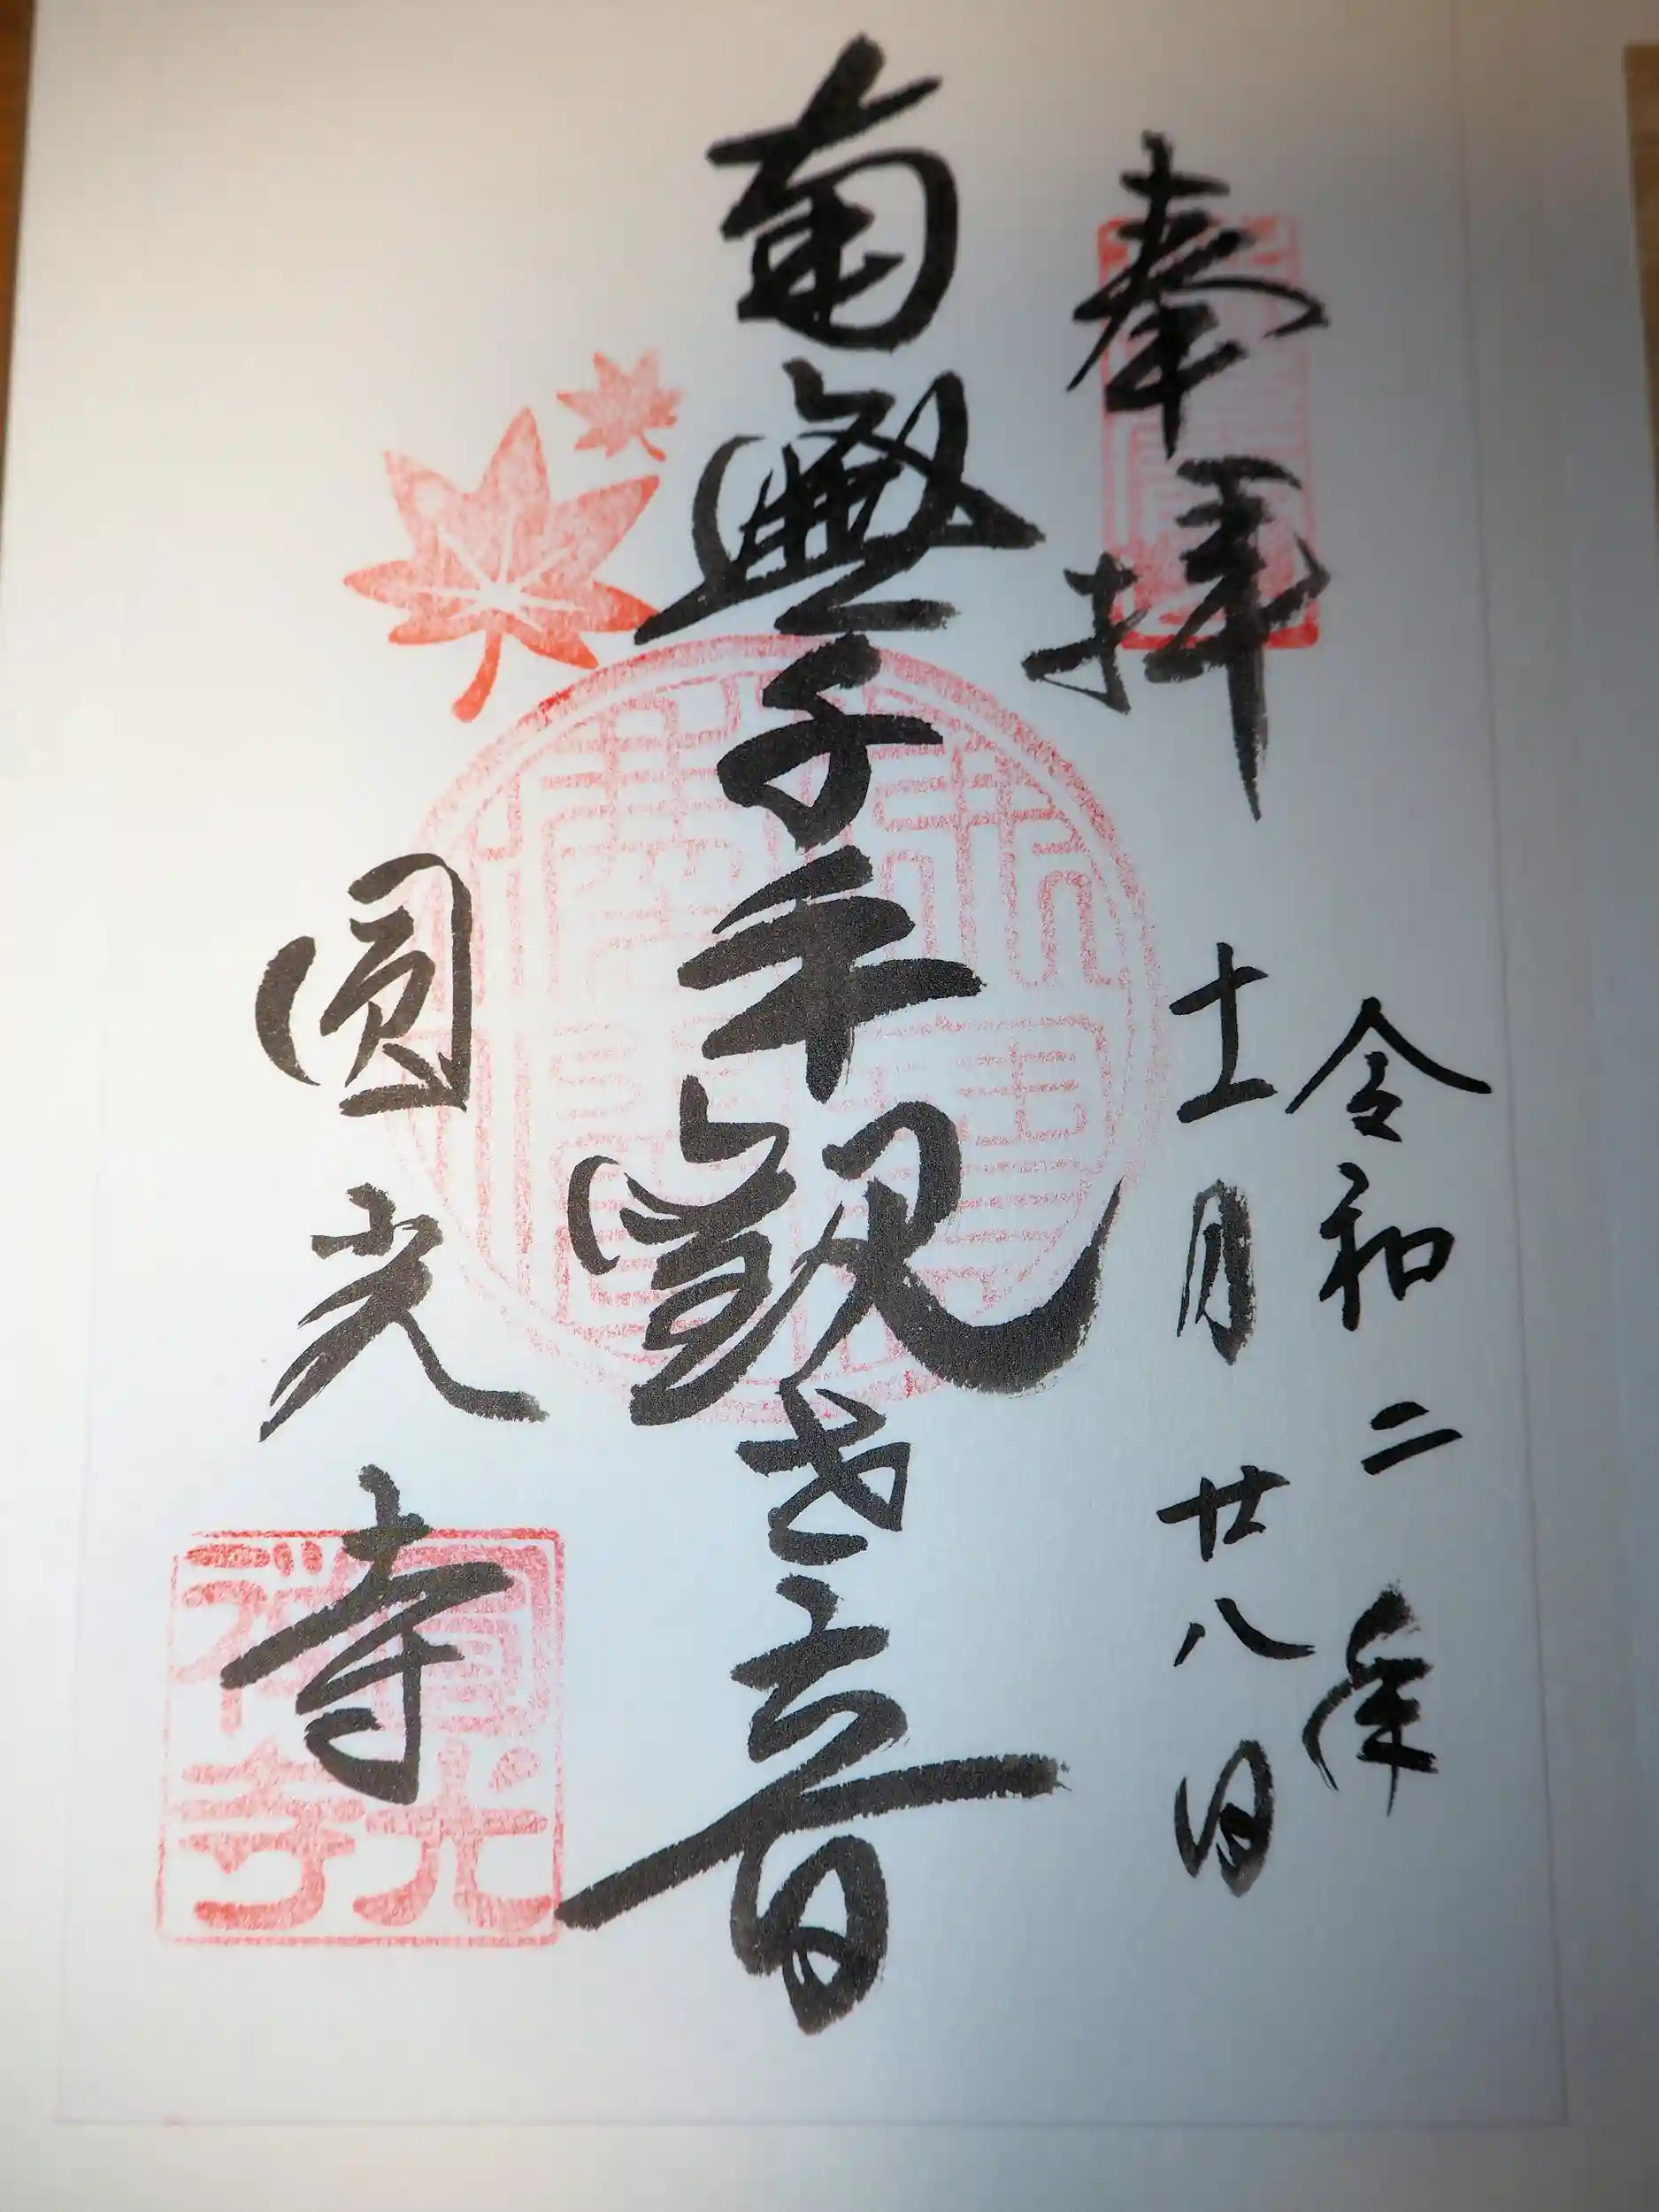 奉拝
令和二年
十一月廿八日
南無千手観世音
圓光寺
圓光
禅寺